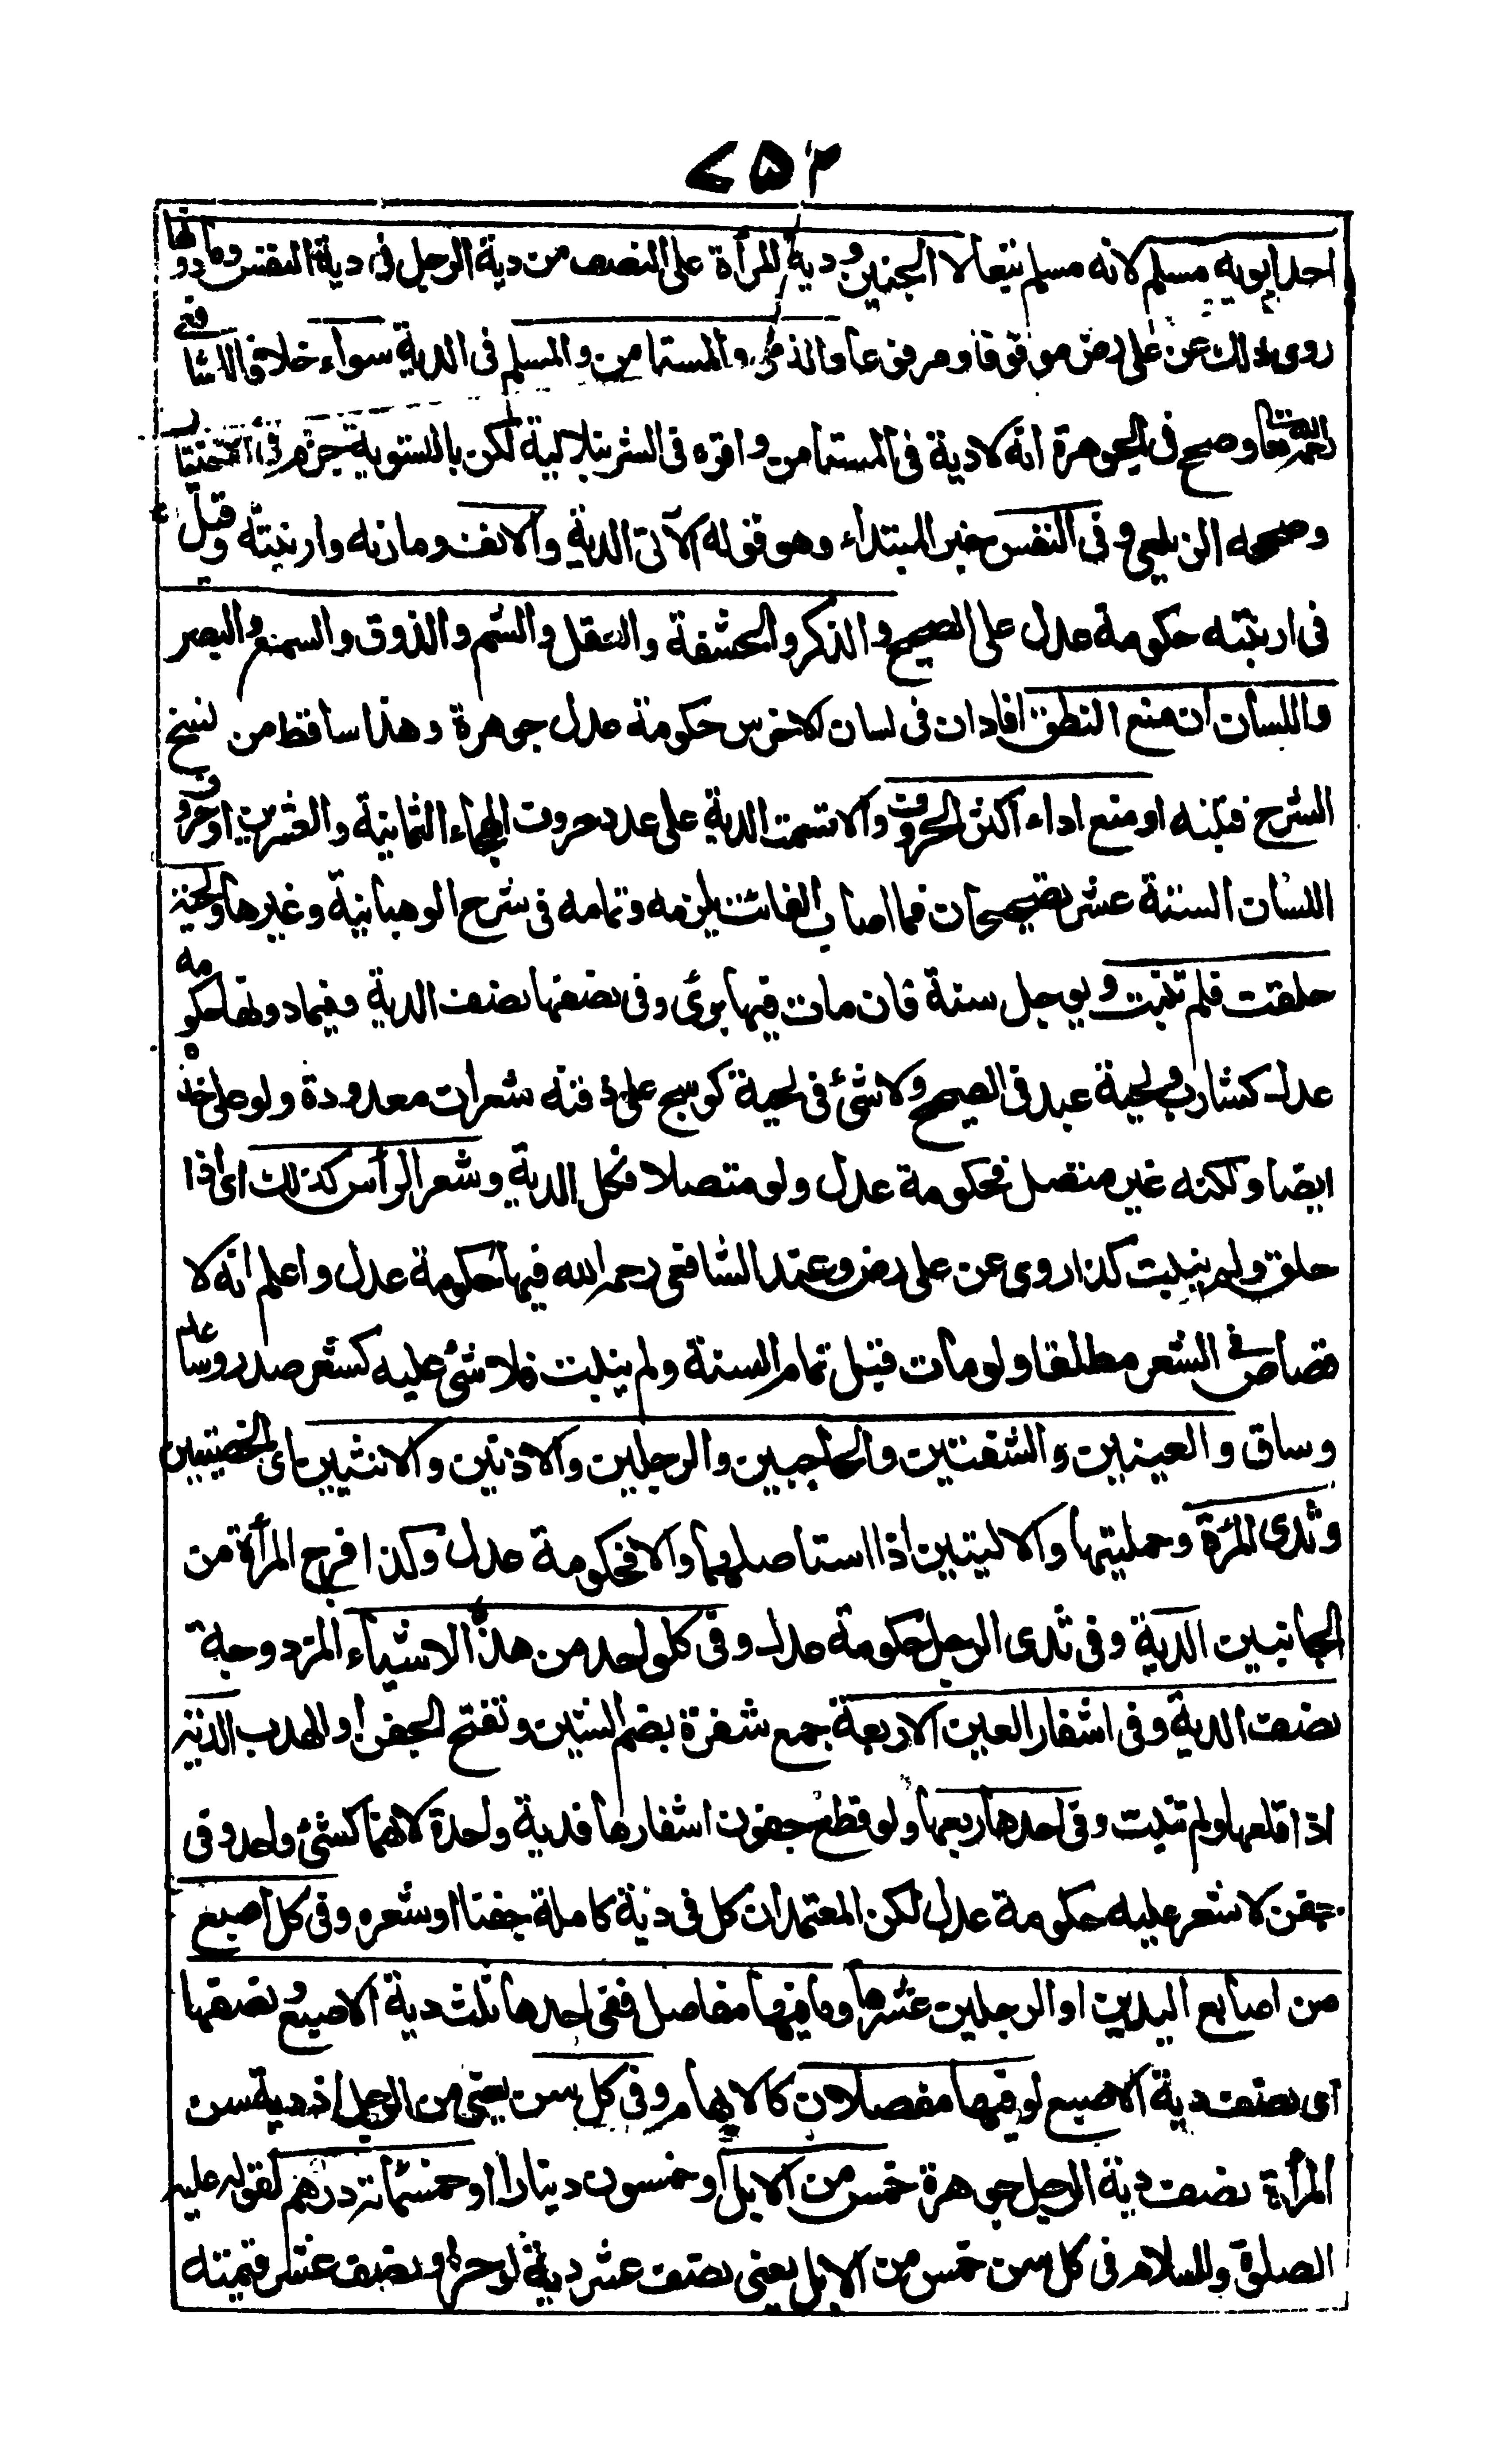 ٢٥٧
احد ابويه مسلم لانه مسلم تبعا لا الجنين ودية المرأة على النصف من دية الرجل فى دية النفس وما دونها
روى ذلك عن على رض موقوفا ومرفوعا والذمى والمستامن والمسلم فى الدية سواء خلافا للشافعى
رحمه الله تعا وصحح فى الجوهرة انه لا دية فى المستامن واقره فى الشرنبلالية لكن بالتسوية جزم فى الاختيار
وصححه الزيلعى وفى النفس خبر المبتداء وهو قوله الآتى الدية والانف ومارنه وارنبته وقيل
فى ارنبته حكومة عدل على الصحيح والذكر والحشفة والعقل والشم والذوق والسمع والبصر
واللسان ان منع النطق افاد ان فى لسان الاخرس حكومة عدل جوهرة وهذا ساقط من نسخ
الشرح فتنبه او منع اداء اكثر الحروف والا قسمت الدية على عدد حروف الهجاء الثمانية والعشرين او حروف
اللسان الستة عشر تصحيحان فما اصاب الفائت يلزمه وتمامه فى شرح الوهبانية وغيرها ولحية
حلقت فلم تنبت ويوجل سنة فان مات فيها برئ وفى نصفها نصف الدية وفيما دونها حكومه
عدل كشارب ولحية عبد فى الصحيح ولا شئ فى لحية كوسج على ذقنه شعرات معدودة ولو على خده
ايضا ولكنه غير متصل فحكومة عدل ولو متصلا فكل الدية وشعر الرأس كذلك اى اذا
حلق ولم ينبت كذا روى عن على رض وعند الشافعى رحمه الله فيها حكومة عدل واعلم انه لا
قصاص فى الشعر مطلقا ولو مات قبل تمام السنة ولم ينبت فلا شئ عليه كشعر صدر وساعد
وساق والعينين والشفتين والحاجبين والرجلين والاذنين والانثيين اى الخصيتين
وثدى المرة وحملتيها والاليتين اذا استاصلهما والا فحكومة عدل وكذا فرج المرأة من
الجانبين الدية وفى ثدى الرجل حكومة عدل وفى كل واحد من هذه الاشياء المزدوجة
نصف الدية وفى اشفار العين الاربعة جمع شفرة بضم الشين وتفتح الجفن او الهدب الدية
اذا قلعها ولم تنبت وفى احدها ربعها ولو قطع جفون اشفارها فدية واحدة لانهما كشئ واحد وفى
جفن لا شعر عليه حكومة عدل لكن المعتمد ان كل فى دية كاملة جفنا او شعره وفى كل اصبع
من اصابع اليدين او الرجلين عشرها وما فيها مفاصل ففى احدها ثلث دية الاصبع ونصفها
اى نصف دية الاصبع لو فيها مفصلان كالابهام وفى كل سن يعنى من الرجل اذ دية سن
المرأة نصف دية الرجل جوهرة خمس من الابل او خمسون دينارا او خمسمائة درهم لقوله عليه
الصلوة والسلام فى كل سن خمس من الابل يعنى نصف عشر دية لو حرا ونصف عشر قيمته